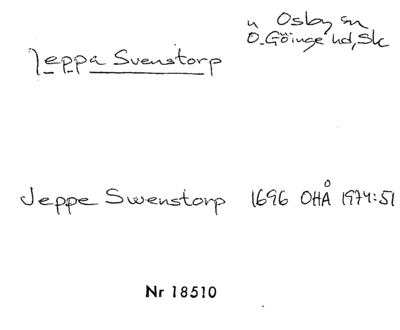 n Osby sn
Ö. Göinge hd, Sk
Jeppa Svenstorp
Jeppe Swenstorp 1696 OHÅ 1974:51
Nr 18510